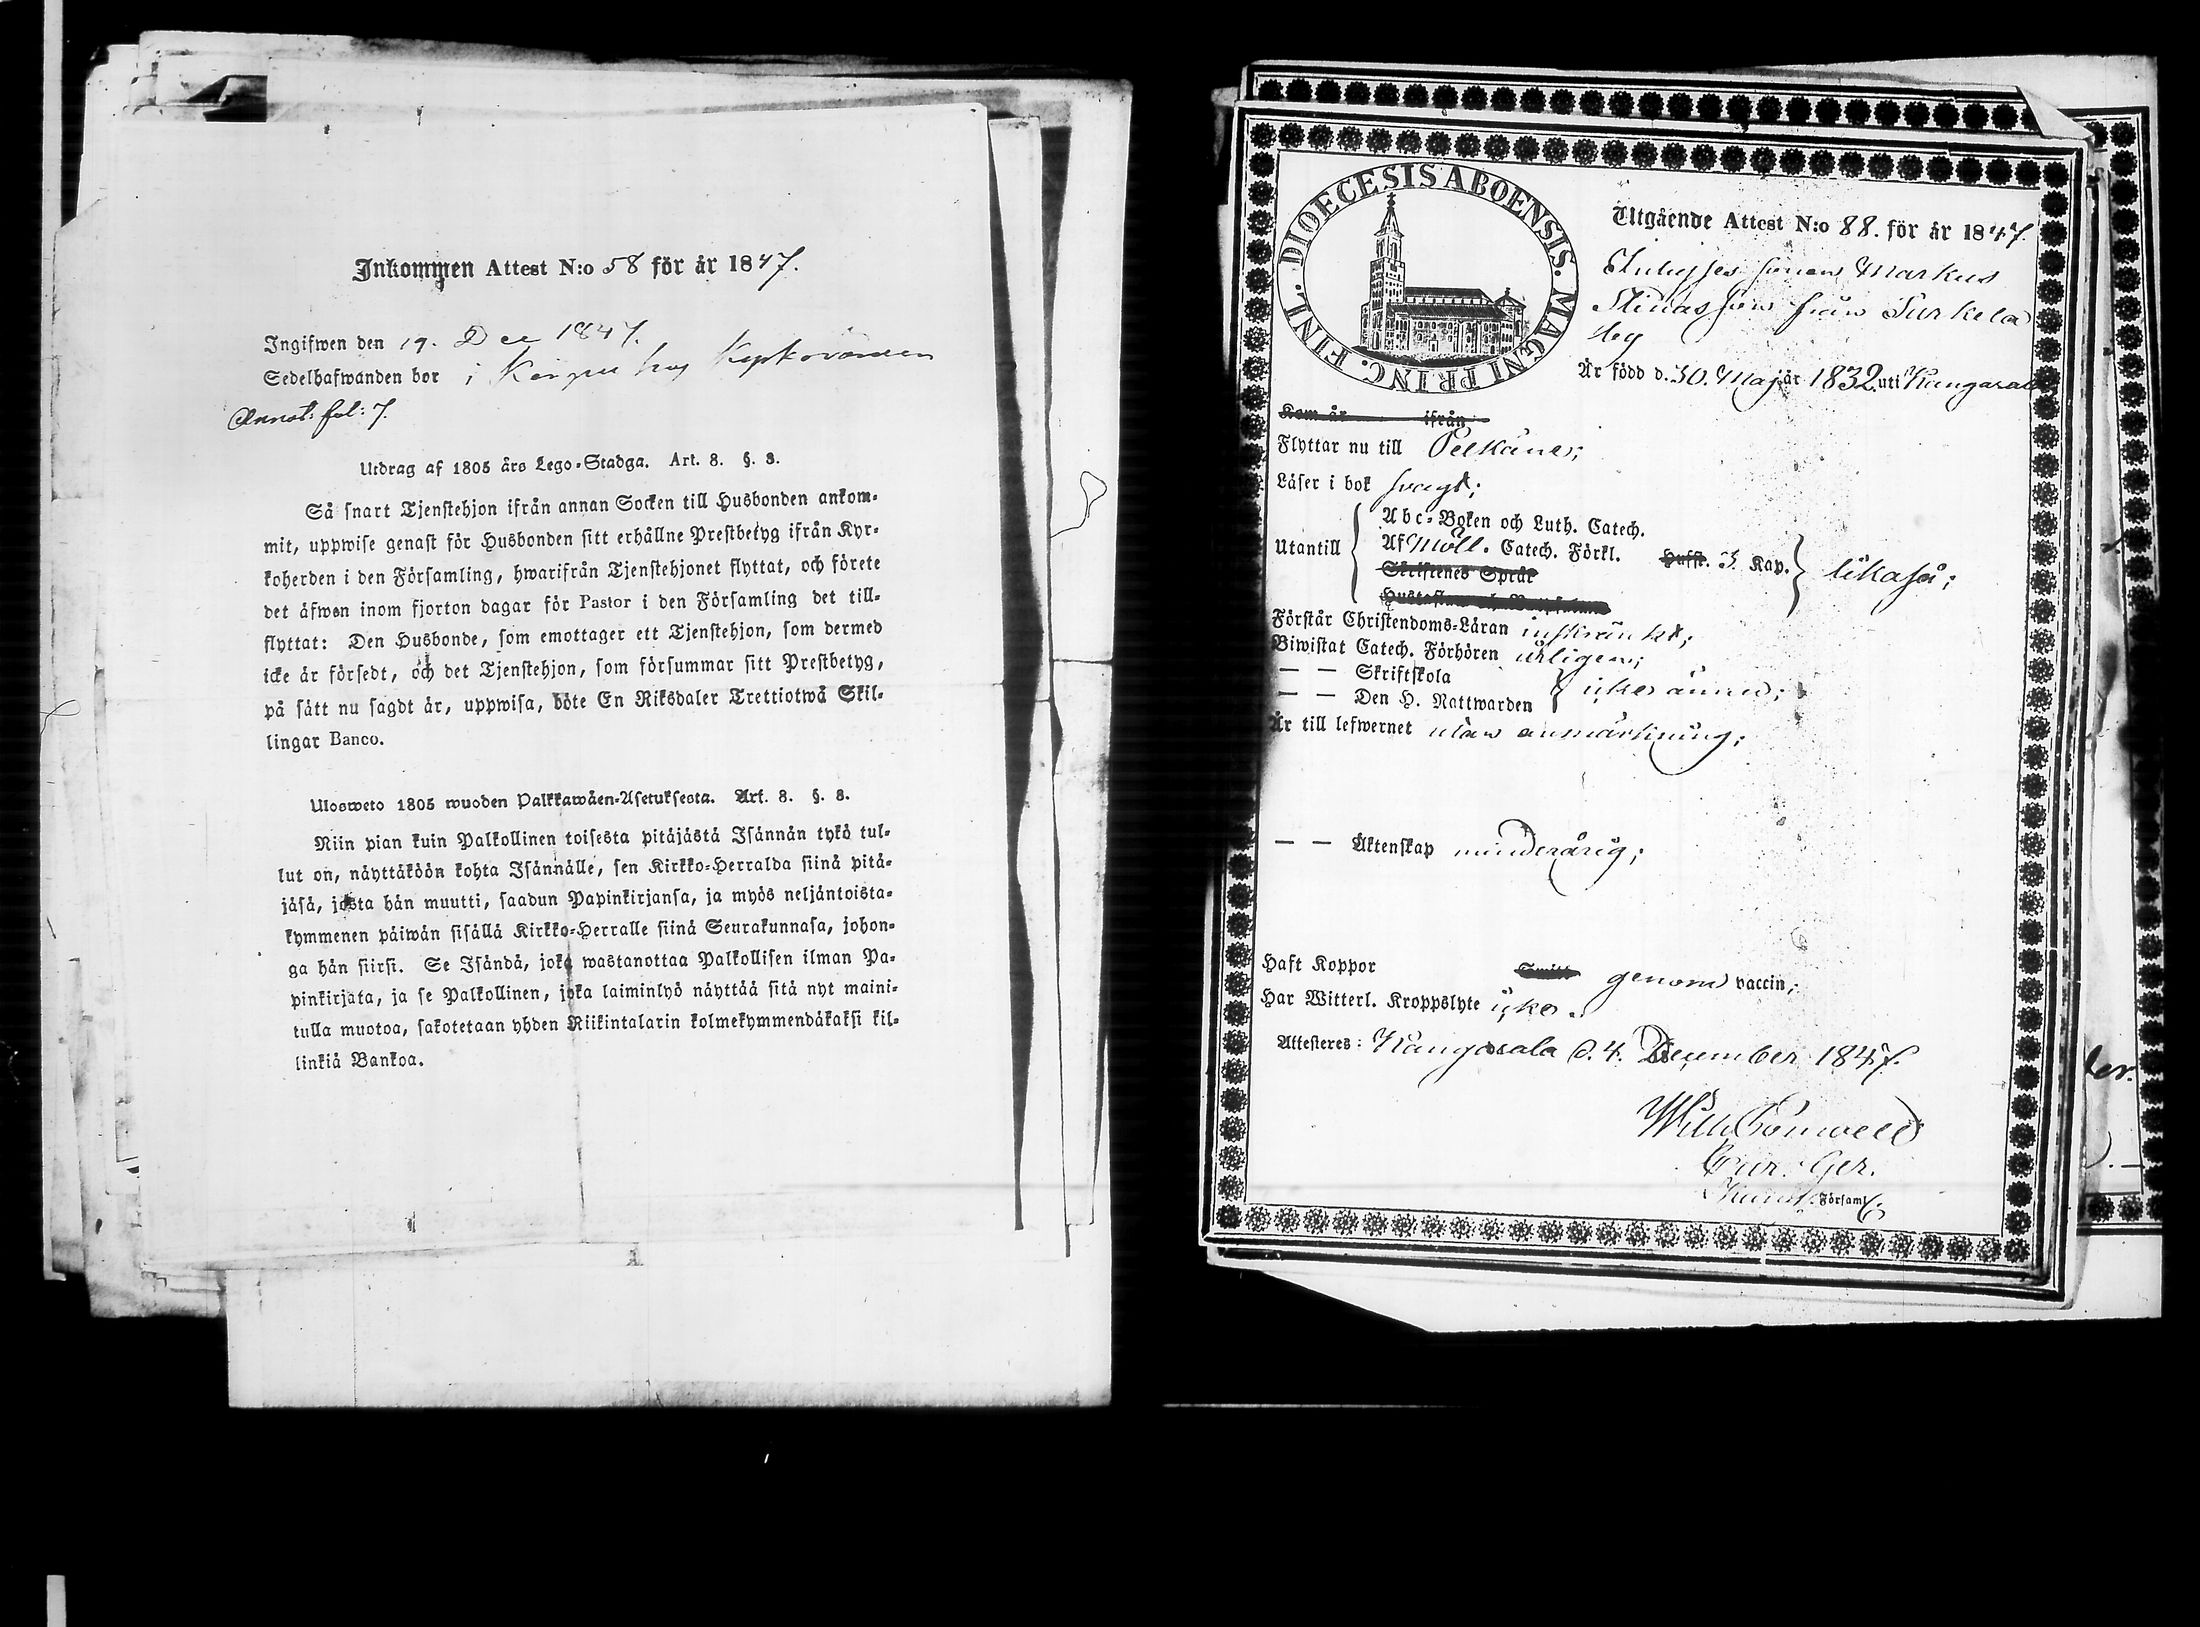 Inkommen Attest N:o 58 för år 1847.
Ingifwen den 19. Dec 1847.
Sedelhafwanden bor i
Annot: fol: 7.
Utdrag af 1805 års Lego-Stadga. Art. 8. §. 8.
Så snart Tjenstehjon ifrån annan Socken till Husbonden ankom-
mit, uppwise genast för Husbonden sitt erhållne Prestbetyg ifrån Kyr-
koherden i den Församling, hwarifrån Tjenstehjonet flyttat, och förete
det äfwen inom fjorton dagar för Pastor i den Församling det till-
flyttat: Den Husbonde, som emottager ett Tjenstehjon, som dermed
icke är försedt, och det Tjenstehjon, som försummar sitt Prestbetyg,
på sätt nu sagdt är, uppwisa, böte En Riksdaler Trettiotwå Skil-
lingar Banco.
Ulosweto 1805 wuoden Palkkawäen-Asetuksesta. Art. 8. §. 8.
Niin pian kuin Palkollinen toisesta pitäjästä Isännän tykö tul-
lut on, näyttäköön kohta Isännälle, sen Kirkko-Herralda siinä pitä-
jäsä, josta hän muutti, saadun Papinkirjansa, ja myös neljäntoista-
kymmenen päiwän sisällä Kirkko-Herralle siinä Seurakunnasa, johon-
ga hän siirsi. Se Isändä, joka wastanottaa Palkollisen ilman Pa-
pinkirjata, ja se Palkollinen, joka laiminlyö näyttää sitä nyt maini-
tulla muotoa, sakotetaan yhden Riikintalarin kolmekymmendäkaksi kil-
linkiä Bankoa.
DIOECESIS ABOENSIS. MAGNI PRINC. FINL.
Utgående Attest N:o 88. för år 1847.
sonen Markus
från Surkela
by
Är född d. 30. Maj år 1832. uti Kangasala
Kom år ifrån
Flyttar nu till Pelkäne;
Läser i bok svagt;
Abc-Boken och Luth. Catech.
Utantill Af Möll. Catech. Förkl. Hufst. 3. Kap. likaså;
Skriftenes Språk
Förstår Christendoms-Läran inskränkt;
Biwistat Catech. Förhören årligen;
— — Skriftskola
— — Den H. Nattwarden icke ännu;
Är till lefwernet utan anmärkning;
— — Äktenskap minderårig;
Haft Koppor genom vaccin;
Har Witterl. Kroppslyte icke.
Attesteres: Kangasala d. 4. December 1847.
Församl.